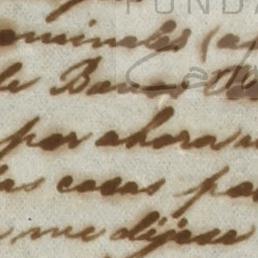 FUNDA
eminales (a
de Banos
por ahora
las casas pa
me dijese